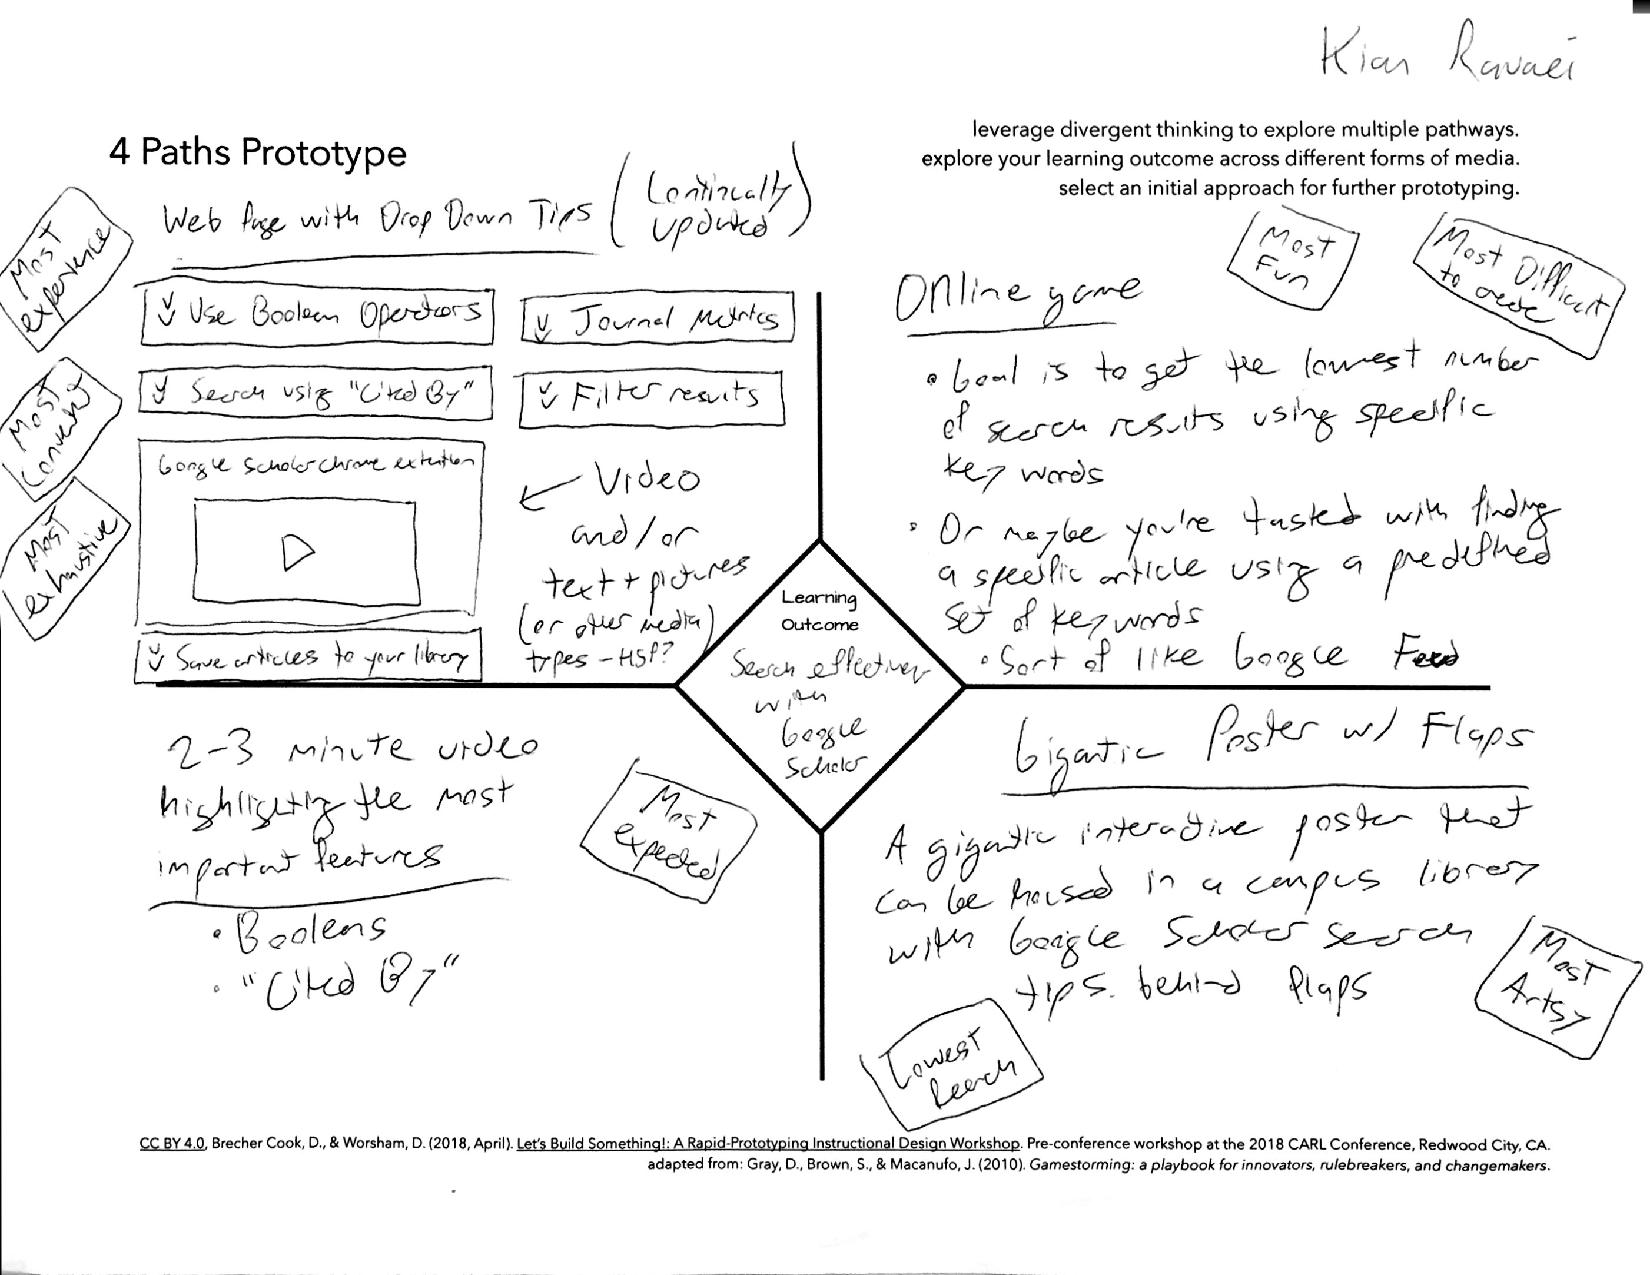 Kian Ravaei
4 Paths Prototype
leverage divergent thinking to explore multiple pathways.
explore your learning outcome across different forms of media.
select an initial approach for further prototyping.
Web Page with Drop Down Tips (Continually
updated)
Most
experience
Most
Most
exhaustive
Use Boolean Operators
Journal Metrics
Search using "Cited By"
Filter results
Google Scholar Chrome extention
Video
and/or
text + pictures
(or other media)
types - H5P?
Save articles to your library
Most
Fun
Most Difficult
to create
Online game
• Goal is to get the lowest number
of search results using specific
key words
• Or maybe you're tasked with finding
a specific article using a predefined
set of key words
• Sort of like Google Feud
Learning
Outcome
Search effectively
with
Google
Scholar
2-3 minute video
highlighting the most
important features
• Booleans
• "Cited By"
Most
expected
Gigantic Poster w/ Flaps
A gigantic interactive poster that
can be housed in a campus library
with Google Scholar search
tips. behind flaps
Most
Artsy
Lowest
Reach
CC BY 4.0, Brecher Cook, D., & Worsham, D. (2018, April). Let's Build Something!: A Rapid-Prototyping Instructional Design Workshop. Pre-conference workshop at the 2018 CARL Conference, Redwood City, CA.
adapted from: Gray, D., Brown, S., & Macanufo, J. (2010). Gamestorming: a playbook for innovators, rulebreakers, and changemakers.